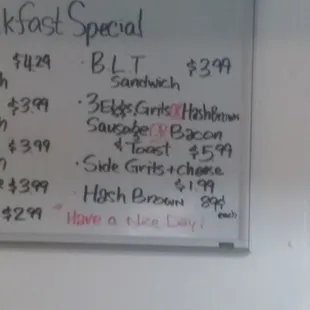 kfast Special
$4.29
h
$3.99
h
$3.99
n
$3.99
$2.99
· BLT $3.99
Sandwich
· 3 Eggs, Grits OR HashBrown
Sausage OR Bacon
& Toast $5.99
· Side Grits + cheese
$1.99
· Hash Brown 89¢
each
Have a Nice Day!